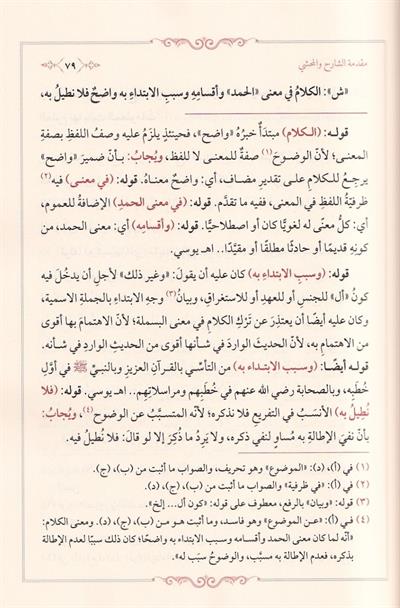 مقدمة الشارح والمحشي
٧٩
«ش»: الكلامُ في معنى «الحمد» وأقسامِهِ وسببِ الابتداءِ به واضحٌ فلا نطيلُ به،
قولـه: (الكـلام) مبتدَأٌ خبرُهُ «واضح»، فحينئذٍ يلزمُ عليه وصفُ اللفظِ بصفةِ
المعنـى؛ لأنّ الوضـوحَ(١) صفةٌ للمعنى لا للفظ، ويُجابُ: بـأنّ ضميرَ «واضح»
يرجِـعُ للـكلامِ علـى تقديرِ مضـاف، أي: واضحٌ معنـاهُ. قوله: (في معنـى) فيه(٢)
ظرفيّةُ اللفظِ في المعنى، ففيه ما تقدَّم. قوله: (في معنى الحمدِ) الإضافةُ للعموم،
أي: كلُّ معنًى له لغويًّا كان أو اصطلاحيًّا. قوله: (وأقسامِه) أي: معنى الحمد، من
كونِه قديمًا أو حادثًا مطلقًا أو مقيَّدًا.. اهـ يوسي.
قوله: (وسببِ الابتداءِ به) كان عليه أن يقولَ: «وغيرِ ذلك» لأجلِ أن يدخُلَ فيه
كونُ «أل» للجنسِ أو للعهدِ أو للاستغراقِ، وبيانُ(٣) وجهِ الابتداءِ بالجملةِ الاسمية،
وكان عليه أيضًا أن يعتذِرَ عن تَرْكِ الكلامِ في معنى البسملة؛ لأنّ الاهتمامَ بها أقوى
من الاهتمامِ به، لأنّ الحديثَ الواردَ في شأنِها أقوى من الحديثِ الواردِ في شأنه.
قولـه أيضًـا: (وسـببِ الابتـداءِ به) من التأسِّي بالقـرآنِ العزيزِ وبالنبيِّ ﷺ في أوّلِ
خُطَبِه، وبالصحابةِ رضي الله عنهم في خُطَبِهم ومراسلاتِهم.. اهـ يوسي. قوله: (فلا
نُطيلُ به) الأنسَبُ في التفريعِ فلا نذكره؛ لأنّه المتسبَّبُ عن الوضوح(٤)، ويُجابُ:
بأنّ نفيَ الإطالةِ به مُساوٍ لنفي ذكرِه، ولا يَرِدُ ما ذُكِرَ إلا لو قالَ: فلا نُطيلُ فيه.
(١) في (أ)، (د): «الموضوع» وهو تحريف، والصواب ما أثبت من (ب)، (ج).
(٢) في (أ): «في ظرفية» والصواب ما أثبت من (ب)، (ج)، (د).
(٣) قوله: «وبيان» بالرفع، معطوف على قوله: «كون أل... إلخ».
(٤) في (أ): «عـن الموضوع» وهو فاسـد، وما أثبت هـو مـن (ب)، (ج)، (د). ومعنى الكلام:
«أنّه لما كان معنى الحمد وأقسامه وسبب الابتداء به واضحًا؛ كان ذلك سببًا لعدم الإطالة
بذكره، فعدم الإطالة به مسبَّب، والوضوحُ سبَب له».